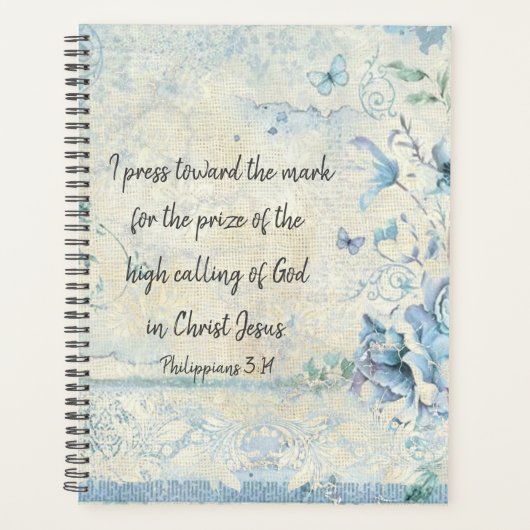 I press toward the mark
for the prize of the
high calling of God
in Christ Jesus
Philippians 3:14